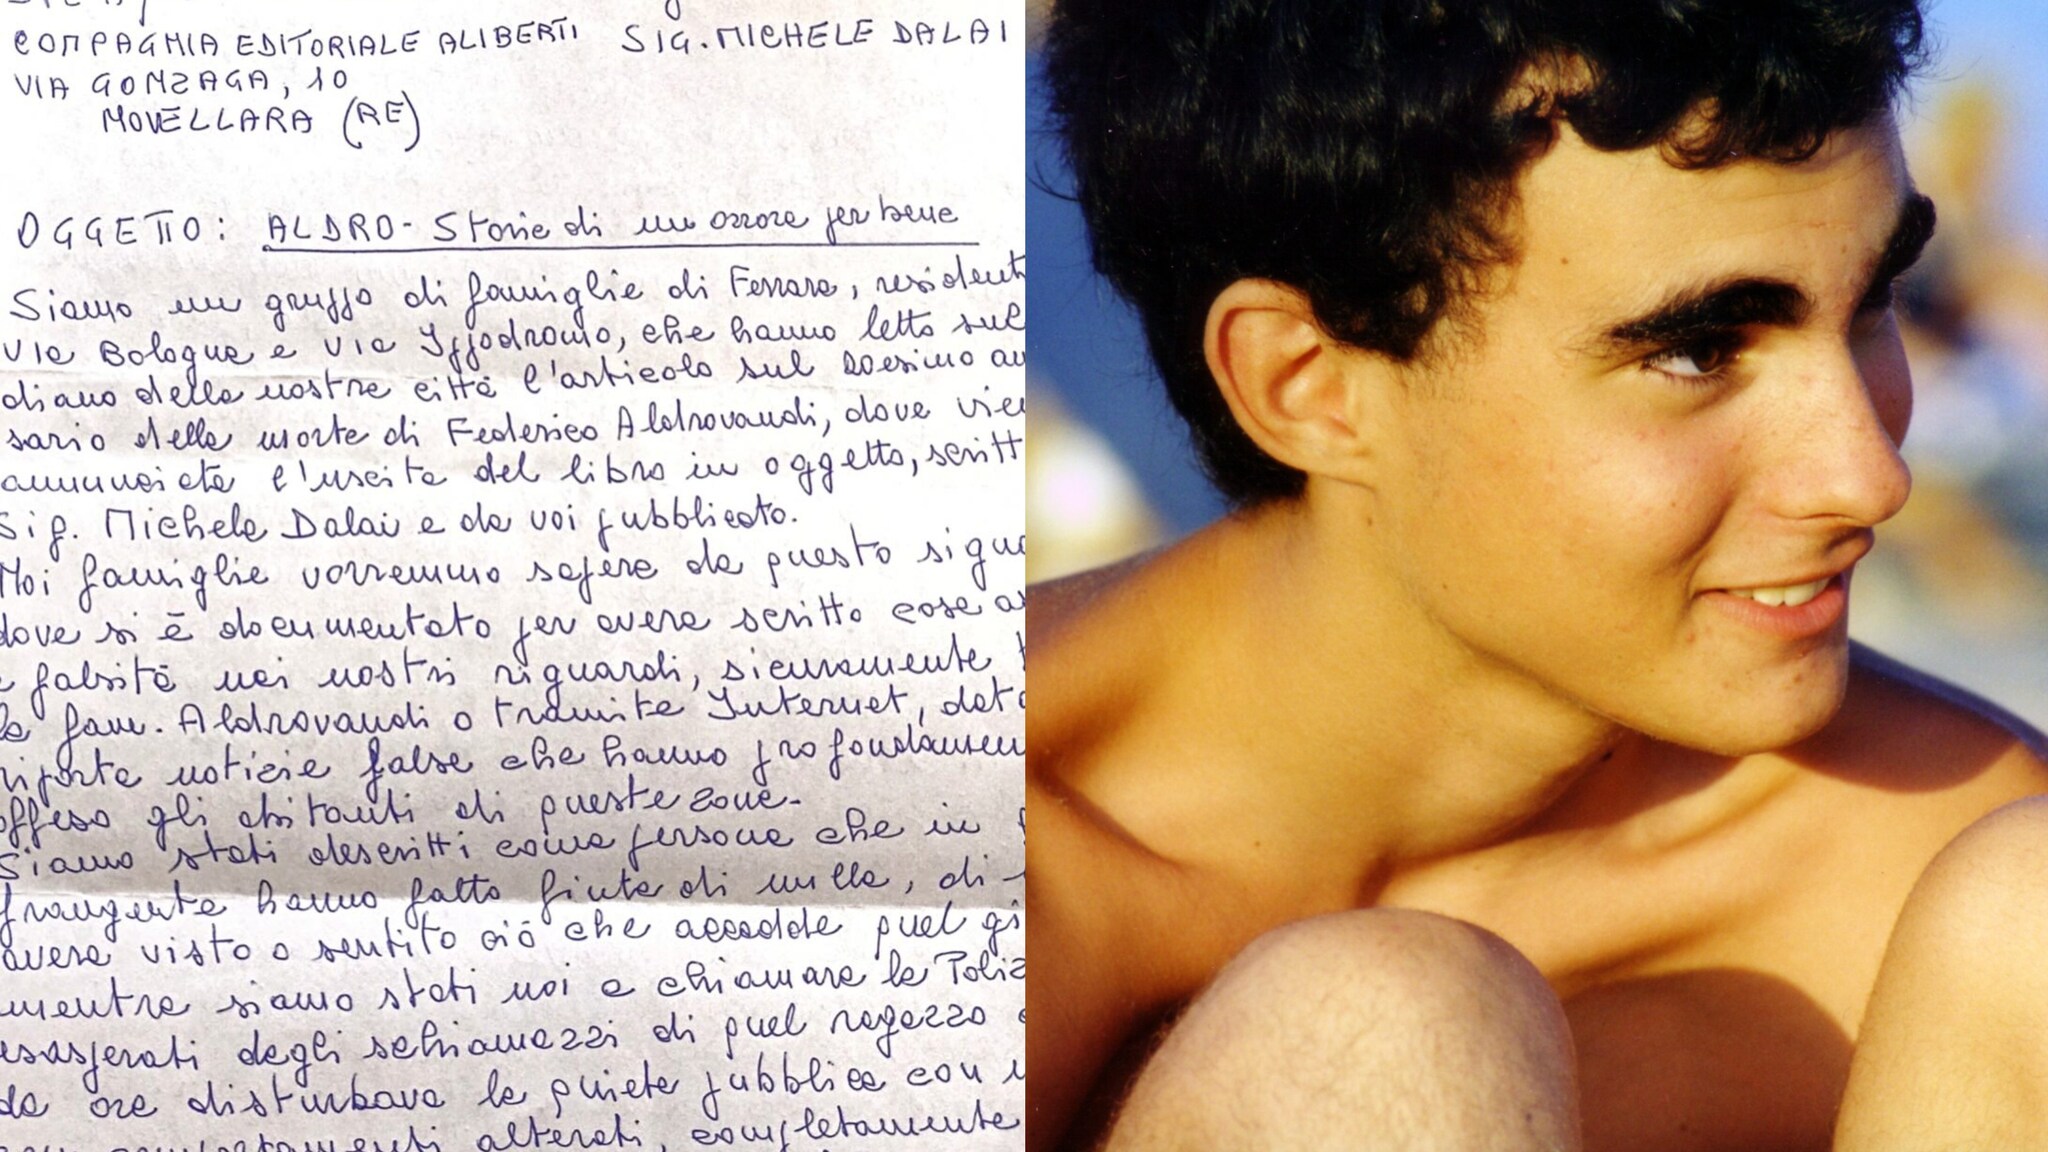 COMPAGNIA EDITORIALE ALIBERTI SIG. MICHELE DALAI
VIA GONZAGA, 10
NOVELLARA (RE)
OGGETTO: ALDRO - Storia di un orrore per bene
Siamo un gruppo di famiglie di Ferrara, resident
Via Bologna e Via Ippodromo, che hanno letto sul
diano della nostra città l'articolo sul decimo an
sario della morte di Federico Aldrovandi, dove vien
annunciata l'uscita del libro in oggetto, scritt
Sig. Michele Dalai e da voi pubblicato.
Noi famiglie vorremmo sapere da questo signo
dove si è documentato per avere scritto cose as
e falsità nei nostri riguardi, sicuramente t
la fam. Aldrovandi o tramite Internet, dato
riporta notizie false che hanno profondamen
offeso gli abitanti di queste zone.
Siamo stati descritti come persone che in
frangente hanno fatto finta di nulla, di
avere visto o sentito ciò che accadde quel gi
mentre siamo stati noi a chiamare la Poliz
esasperati degli schiamazzi di quel ragazzo
da ore disturbava la quiete pubblica con
comportamenti alterati, completamente